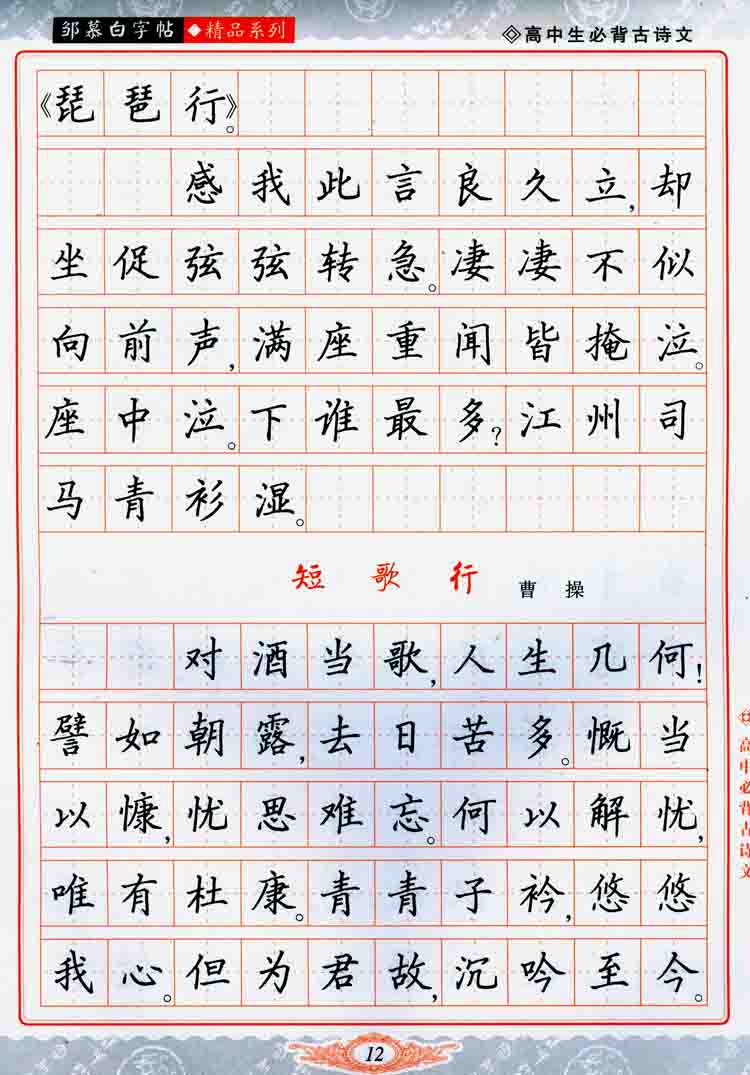 邹慕白字帖 ◆精品系列
◇高中生必背古诗文
《琵琶行》。
感我此言良久立,却
坐促弦弦转急。凄凄不似
向前声,满座重闻皆掩泣。
座中泣。下谁最多?江州司
马青衫湿。
短歌行 曹操
对酒当歌,人生几何!
譬如朝露,去日苦多。慨当
以慷,忧思难忘。何以解忧,
唯有杜康。青青子衿,悠悠
我心。但为君故,沉吟至今。
高中必背古诗文
12